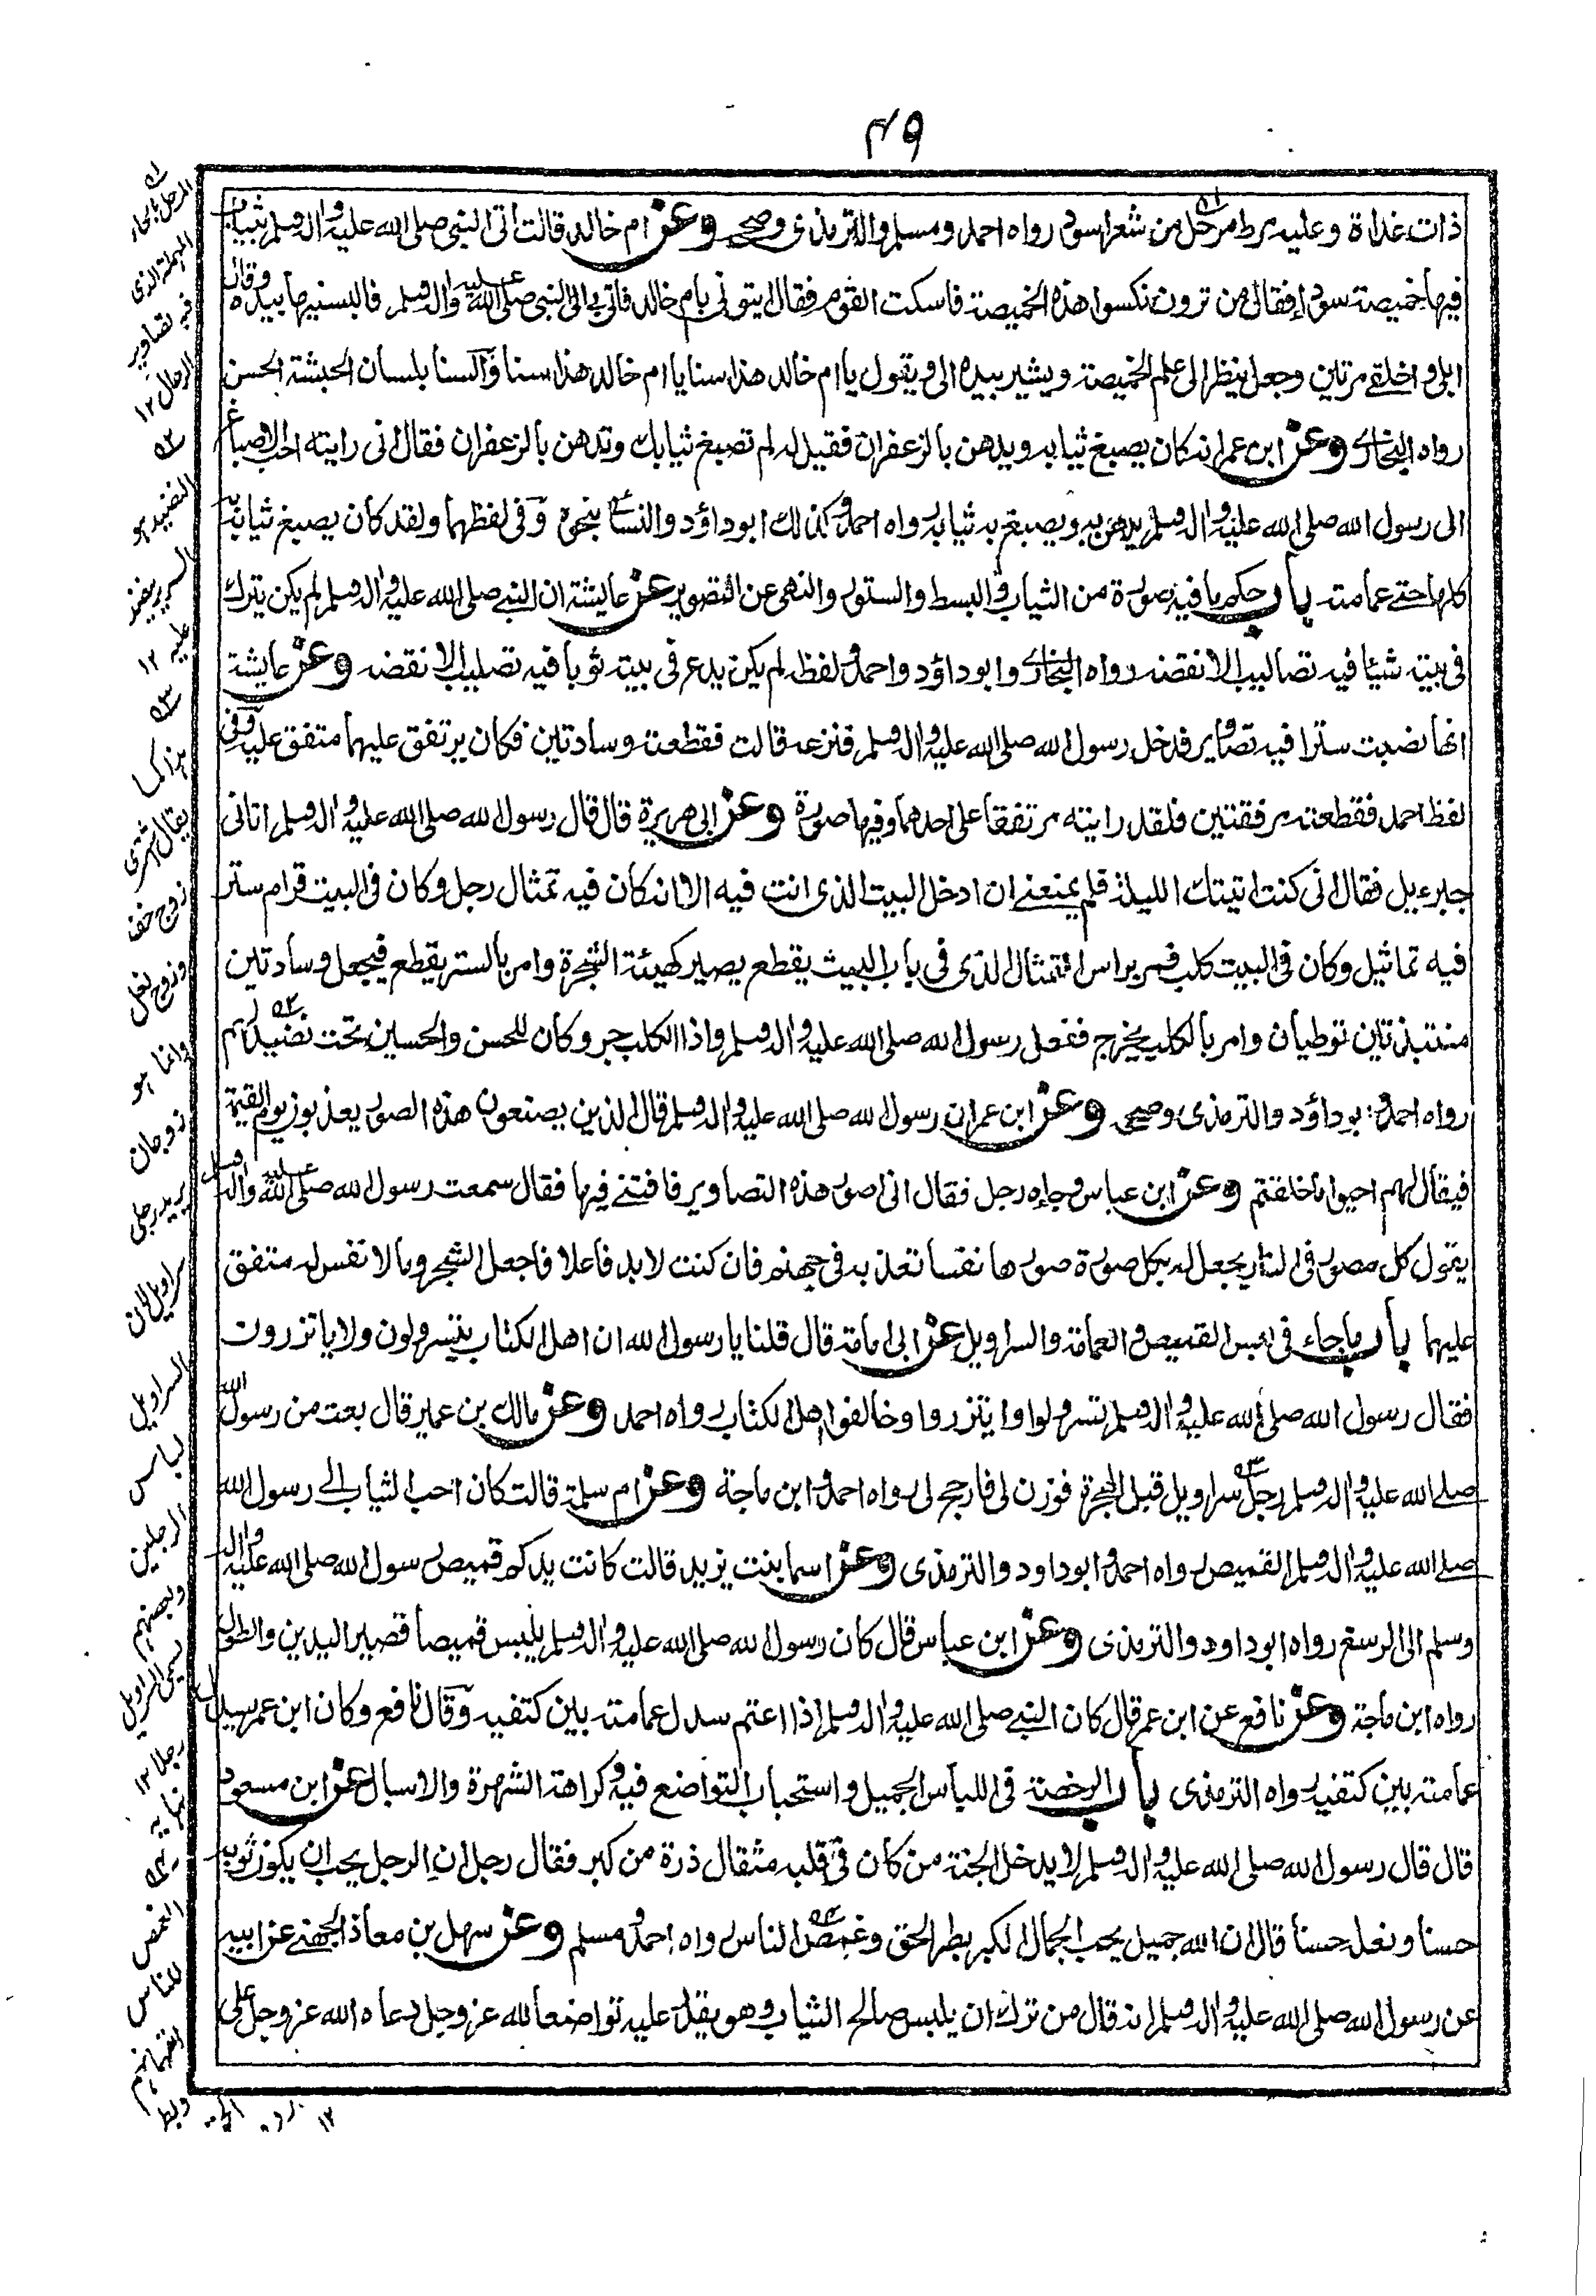 ٤٩
ذات غداة وعليه مرط مرحل من شعر اسود رواه احمد ومسلم والترمذى وصححه وعن ام خالد قالت اتى النبى صلى الله عليه واله وسلم بثياب
فيها خميصة سوداء فقال من ترون نكسوا هذه الخميصة فاسكت القوم فقال ايتونى بام خالد فاتى بى الى النبى صلى الله عليه واله وسلم فالبسنيها بيده وقال
ابلى واخلقى مرتين وجعل ينظر الى علم الخميصة ويشير بيده الى ويقول يا ام خالد هذا سنا يا ام خالد هذا سنا والسنا بلسان الحبشة الحسن
رواه البخارى وعن ابن عمر انه كان يصبغ ثيابه ويدهن بالزعفران فقيل له لم تصبغ ثيابك وتدهن بالزعفران فقال انى رايته احب الاصباغ
الى رسول الله صلى الله عليه واله وسلم يدهن به ويصبغ به ثيابه رواه احمد وكذلك ابو داؤد والنسائى بنحوه وفى لفظهما ولقد كان يصبغ ثيابه
كلها حتى عمامته باب حكم ما فيه صورة من الثياب والبسط والستور والنهى عن التصوير عن عايشة ان النبى صلى الله عليه واله وسلم لم يكن يترك
فى بيته شيئا فيه تصاليب الا نقضه رواه البخارى وابو داؤد واحمد ولفظه لم يكن يدع فى بيته ثوبا فيه تصليب الا نقضه وعن عايشة
انها نصبت سترا فيه تصاوير فدخل رسول الله صلى الله عليه واله وسلم فنزعه قالت فقطعته وسادتين فكان يرتفق عليهما متفق عليه وفى
لفظ احمد فقطعته مرفقتين فلقد رايته مرتفقا على احدهما وفيها صورة وعن ابى هريرة قال قال رسول الله صلى الله عليه واله وسلم اتانى
جبرءيل فقال انى كنت اتيتك الليلة فلم يمنعنى ان ادخل البيت الذى انت فيه الا انه كان فيه تمثال رجل وكان فى البيت قرام ستر
فيه تماثيل وكان فى البيت كلب فمر براس التمثال الذى فى باب البيت يقطع يصير كهيئة الشجرة وامر بالستر يقطع فيجعل وسادتين
منتبذتين توطيان وامر بالكلب يخرج ففعل رسول الله صلى الله عليه واله وسلم واذا الكلب جرو وكان للحسن والحسين تحت نضيد لهم
رواه احمد وابو داؤد والترمذى وصححه وعن ابن عمر ان رسول الله صلى الله عليه واله وسلم قال الذين يصنعون هذه الصور يعذبون يوم القيمة
فيقال لهم احيوا ما خلقتم وعن ابن عباس وجاءه رجل فقال انى اصور هذه التصاوير فافتنى فيها فقال سمعت رسول الله صلى الله عليه واله وسلم
يقول كل مصور فى النار يجعل له بكل صورة صورها نفسا تعذبه فى جهنم فان كنت لا بد فاعلا فاجعل الشجر وما لا نفس له متفق
عليهما باب ما جاء فى لبس القميص والعمامة والسراويل عن ابى امامة قال قلنا يا رسول الله ان اهل الكتاب يتسرولون ولا ياتزرون
فقال رسول الله صلى الله عليه واله وسلم تسرولوا وايتزروا وخالفوا اهل الكتاب رواه احمد وعن مالك بن عمير قال بعت من رسول الله
صلى الله عليه واله وسلم رجل سراويل قبل الهجرة فوزن لى فارجح لى رواه احمد وابن ماجة وعن ام سلمة قالت كان احب الثياب الى رسول الله
صلى الله عليه واله وسلم القميص رواه احمد وابو داود والترمذى وعن اسما بنت يزيد قالت كانت يد كم قميص رسول الله صلى الله عليه واله
وسلم الى الرسغ رواه ابو داود والترمذى وعن ابن عباس قال كان رسول الله صلى الله عليه واله وسلم يلبس قميصا قصير اليدين والطول
رواه ابن ماجة وعن نافع عن ابن عمر قال كان النبى صلى الله عليه واله وسلم اذا اعتم سدل عمامته بين كتفيه وقال نافع وكان ابن عمر يسدل
عمامته بين كتفيه رواه الترمذى باب الرخصة فى اللباس الجميل واستحباب التواضع فيه وكراهة الشهرة والاسبال عن ابن مسعود
قال قال رسول الله صلى الله عليه واله وسلم لا يدخل الجنة من كان فى قلبه مثقال ذرة من كبر فقال رجل ان الرجل يحب ان يكون ثوبه
حسنا ونعله حسنا قال ان الله جميل يحب الجمال الكبر بطر الحق وغمص الناس رواه احمد ومسلم وعن سهل بن معاذ الجهنى عن ابيه
عن رسول الله صلى الله عليه واله وسلم انه قال من ترك ان يلبس صالح الثياب وهو يقدر عليه تواضعا لله عز وجل دعاه الله عز وجل على
المرحل بالحاء
المهملة الذى
فيه تصاوير
الرحال ١٢
النضيد هو
السرير ينضد
عليه ١٢
هذا كما
يقال اشترى
زوج خف
وزوج نعل
وانما هو
زوجان
يريد رجلى
سراويل لان
السراويل
لباس
الرجلين
وبعضهم
يسمى السراويل
رجلا ١٢
نهايه
الغمص
للناس
احتقارهم